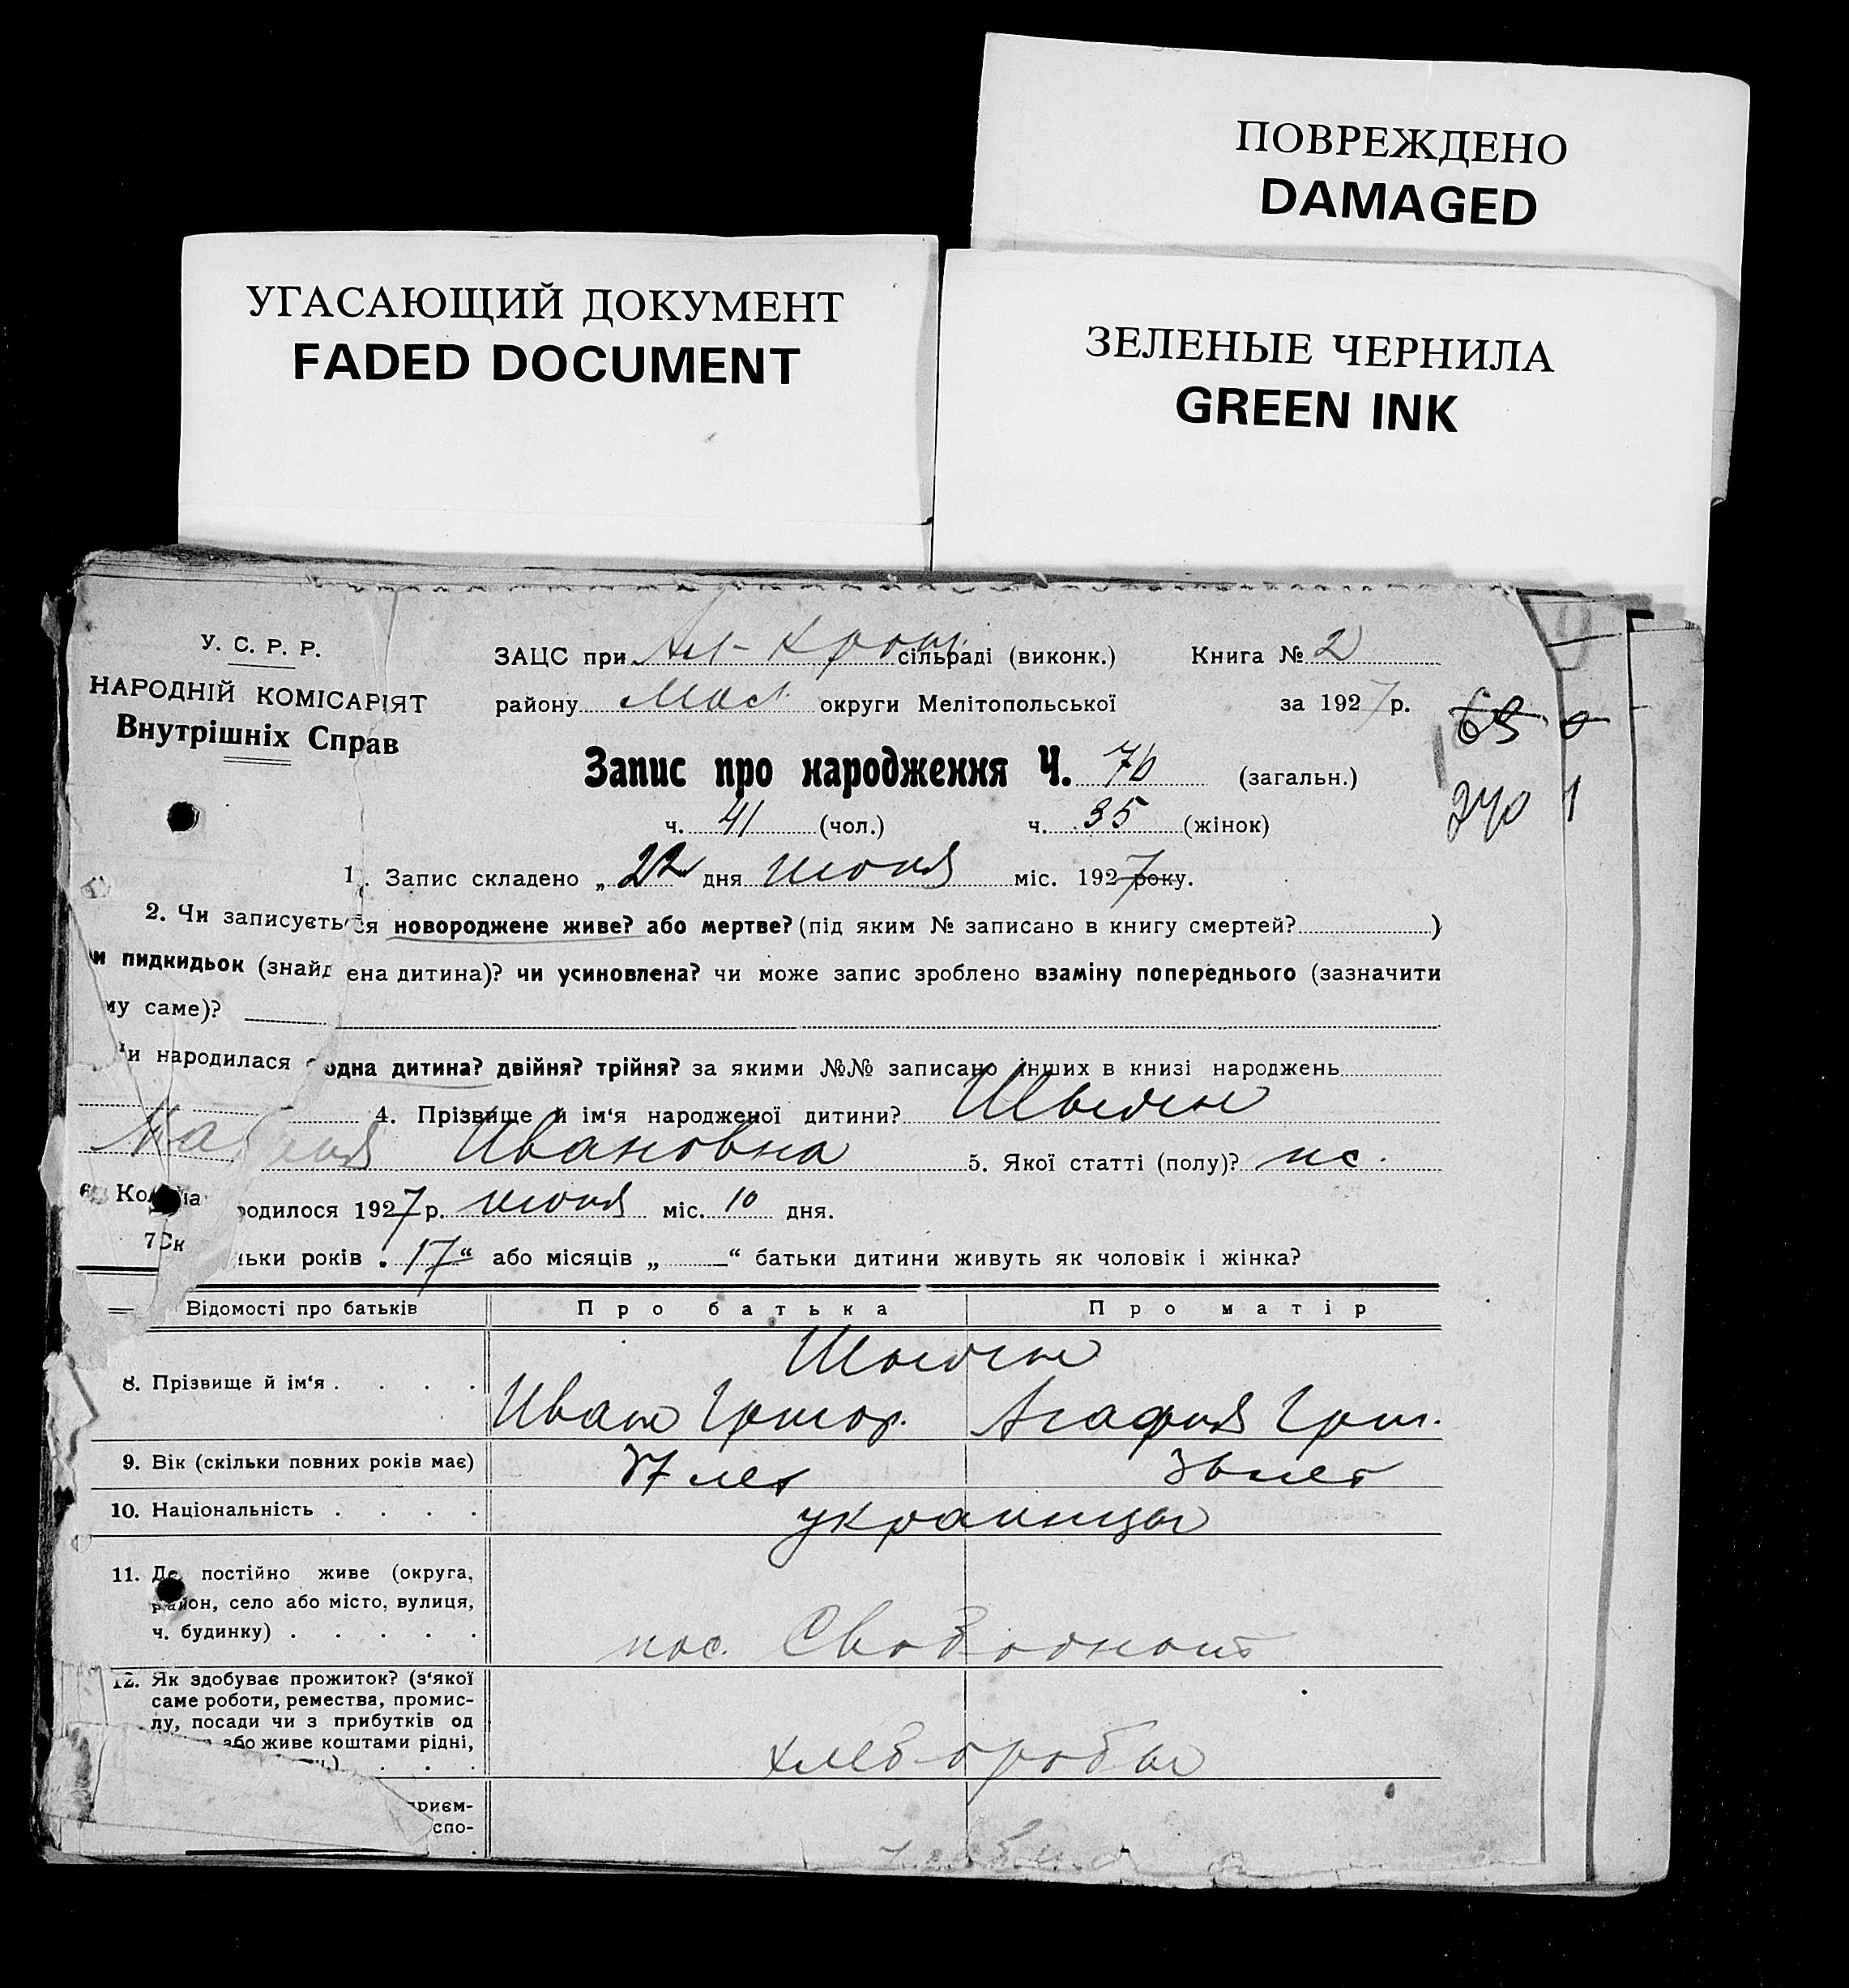 ПОВРЕЖДЕНО
DAMAGED
УГАСАЮЩИЙ ДОКУМЕНТ
FADED DOCUMENT
ЗЕЛЕНЫЕ ЧЕРНИЛА
GREEN INK
У. С. Р. Р.
НАРОДНІЙ КОМІСАРІЯТ
Внутрішніх Справ
ЗАЦС при сільраді (виконк.) Книга № 2
району округи Мелітопольської за 1927 р.
Запис про народження Ч. 76 (загальн.)
ч. 41 (чол.) ч. 35 (жінок)
1. Запис складено „22" дня июня міс. 1927 року.
2. Чи записується новороджене живе? або мертве? (під яким № записано в книгу смертей? )
и пидкидьок (знайдена дитина)? чи усиновлена? чи може запис зроблено взаміну попереднього (зазначити
му саме)?
и народилася одна дитина? двійня? трійня? за якими №№ записано інших в книзі народжень
4. Прізвище й ім'я народженої дитини?
Ивановна 5. Якої статті (полу)? жс.
6. родилося 1927 р. июня міс. 10 дня.
7 Ск льки років „17" або місяців „ — " батьки дитини живуть як чоловік і жінка?
Відомості про батьків Про батька Про матір
8. Прізвище й ім'я . . . .
Иван Григор. Агафия Григ.
9. Вік (скільки повних років має) 37 лет 36 лет
10. Національність . . . . украинцы
11. Де постійно живе (округа,
район, село або місто, вулиця,
ч. будинку) . . . . . пос. Свободного
12. Як здобуває прожиток? (з'якої
саме роботи, ремества, промис-
лу, посади чи з прибутків од
або живе коштами рідні,
хлеборобы
приєм-
спо-